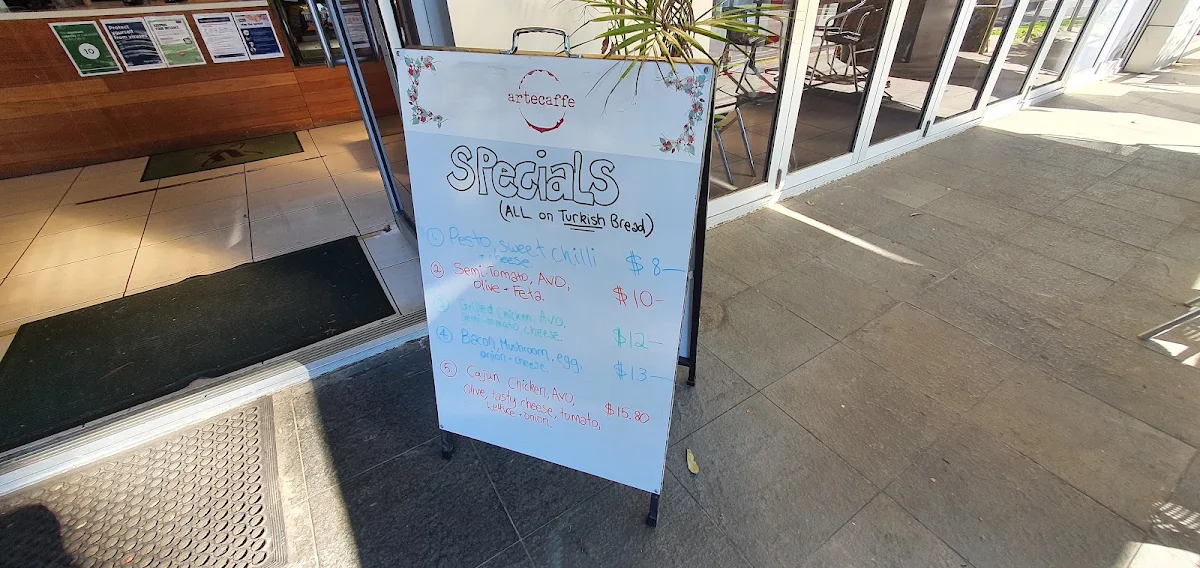 Protect
yourself
10
artecaffe
SPecialS
(ALL on Turkish Bread)
① Pesto, sweet chilli $8—
+ cheese
② Semi-Tomato, AVO, $10—
olive + Feta.
Chicken, AVO,
semi-tomato, cheese $12—
④ Bacon, Mushroom, egg, $13—
onion + cheese
⑤ Cajun Chicken, AVO,
Olive, tasty cheese, tomato, $15.80
Lettuce + onion.